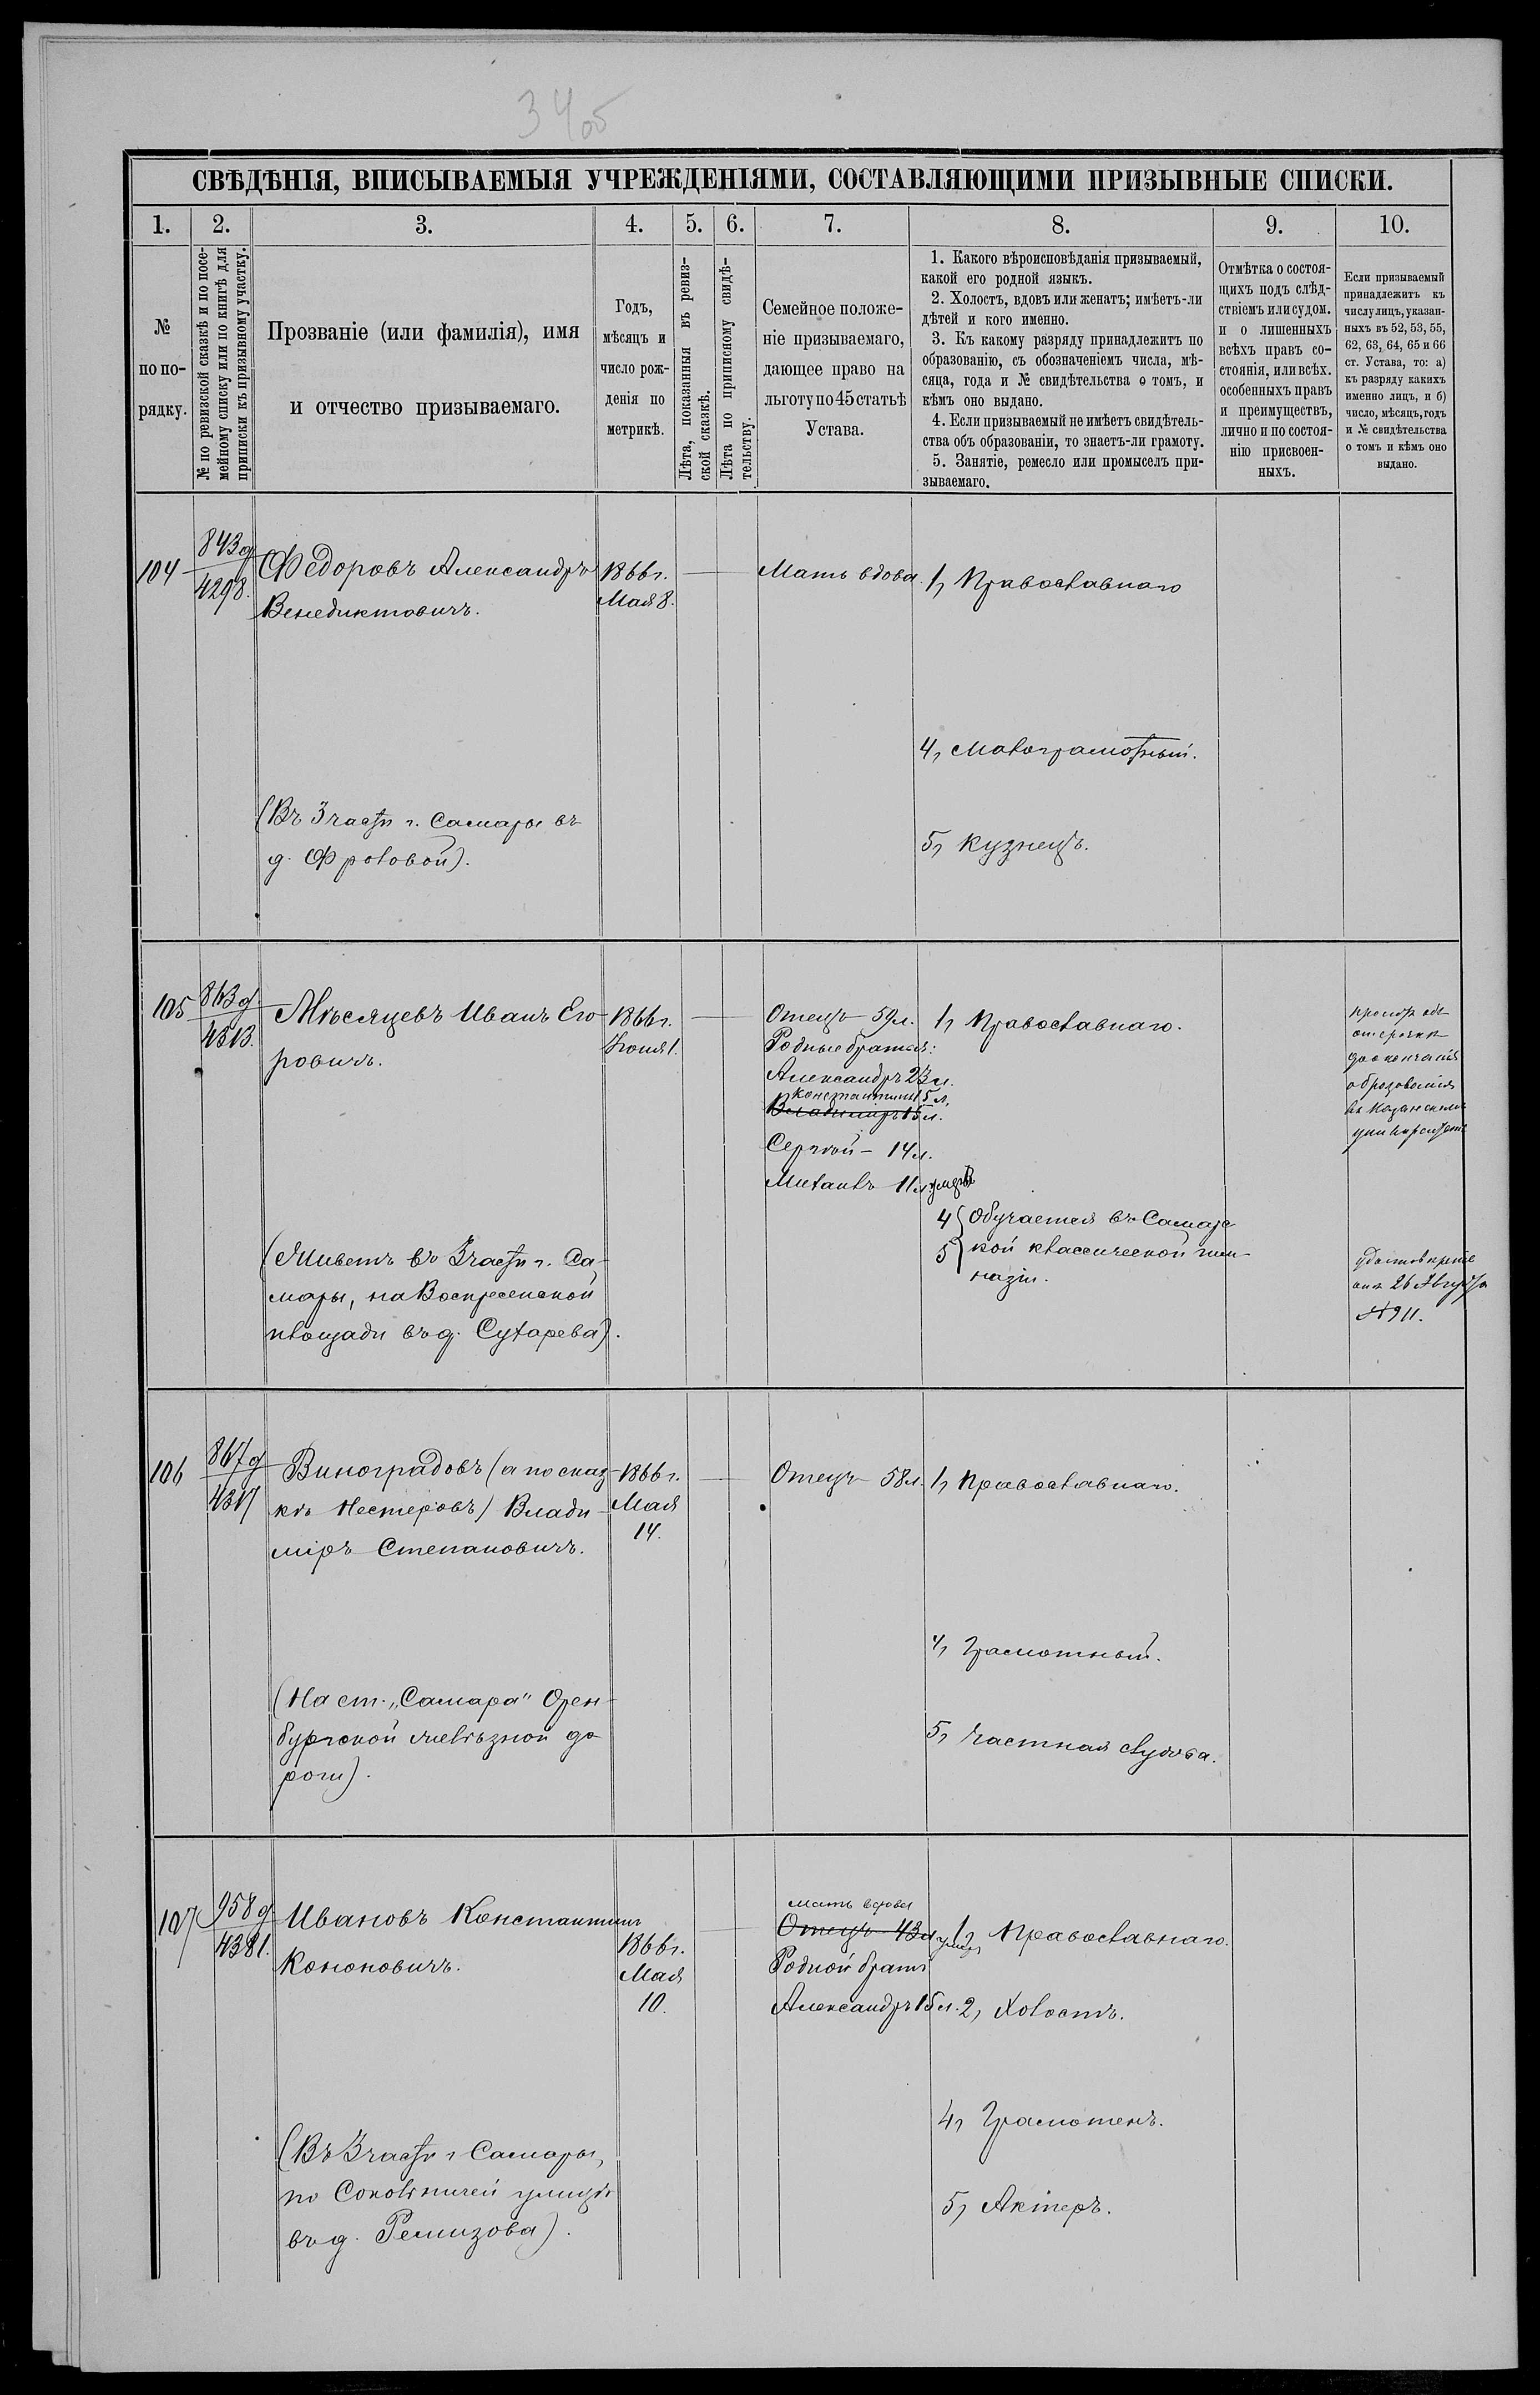 34об
СВѢДѢНІЯ, ВПИСЫВАЕМЫЯ УЧРЕЖДЕНІЯМИ, СОСТАВЛЯЮЩИМИ ПРИЗЫВНЫЕ СПИСКИ.
1. 2. 3. 4. 5. 6. 7. 8. 9. 10.
№
по по-
рядку.
№ по ревизской сказкѣ и по посе-
мейному списку или по книгѣ для
приписки къ призывному участку.
Прозваніе (или фамилія), имя
и отчество призываемаго.
Годъ,
мѣсяцъ и
число рож-
денія по
метрикѣ.
Лѣта, показанныя въ ревиз-
ской сказкѣ.
Лѣта по приписному свидѣ-
тельству.
Семейное положе-
ніе призываемаго,
дающее право на
льготу по 45 статьѣ
Устава.
1. Какого вѣроисповѣданія призываемый,
какой его родной языкъ.
2. Холостъ, вдовъ или женатъ; имѣетъ-ли
дѣтей и кого именно.
3. Къ какому разряду принадлежитъ по
образованію, съ обозначеніемъ числа, мѣ-
сяца, года и № свидѣтельства о томъ, и
кѣмъ оно выдано.
4. Если призываемый не имѣетъ свидѣтель-
ства объ образованіи, то знаетъ-ли грамоту.
5. Занятіе, ремесло или промыселъ при-
зываемаго.
Отмѣтка о состоя-
щихъ подъ слѣд-
ствіемъ или судом.
и о лишенныхъ
всѣхъ правъ со-
стоянія, или всѣх.
особенныхъ правъ
и преимуществъ,
лично и по состоя-
нію присвоен-
ныхъ.
Если призываемый
принадлежитъ къ
числу лицъ, указан-
ныхъ въ 52, 53, 55,
62, 63, 64, 65 и 66
ст. Устава, то: а)
къ разряду какихъ
именно лицъ, и б)
число, мѣсяцъ, годъ
и № свидѣтельства
о томъ и кѣмъ оно
выдано.
104
843 д
4298.
Федоровъ Александръ
Венедиктовичъ.
(Въ 3 части г. Самары въ
д. Фроловой).
1866 г.
Мая 8.
Мать вдова.
1, Православнаго
4, Малограмотный.
5, Кузнецъ.
105
863 д.
4313.
Мѣсяцевъ Иванъ Его-
ровичъ.
(Живетъ въ 3 части г. Са-
мары, на Воскресенской
площади въ д. Суларева).
1866 г.
Іюня 1.
Отецъ 59 л.
Родные братья:
Александръ 23 л.
Константинъ 15 л.
Владиміръ 15 л.
Сергѣй – 14 л.
Михаилъ 11 л.
1, Православнаго.
4 { Обучается въ Самарс-
5 } кой классической гим-
назіи.
отсрочки
до окончанія
образованія
въ Казанскомъ
университетѣ
отъ 26 Августа
№ 911.
106
867 д
4317
Виноградовъ (а по сказ-
кѣ Нестеровъ) Влади-
міръ Степановичъ.
(На ст. „Самара" Орен-
бургской желѣзной до-
роги).
1866 г.
Мая
14.
Отецъ 58 л.
1, Православнаго.
4, Грамотный.
5, Частная служба.
107
958 д
4381.
Ивановъ Константинъ
Кононовичъ.
(Въ 3 части г. Самары,
по Соколничей улицѣ
въ д. Ремизова).
1866 г.
Мая
10.
мать вдова
Отецъ 43 л.
Родной братъ
Александръ 15 л.
1, Православнаго.
2, Холостъ.
4, Грамотенъ.
5, Актеръ.